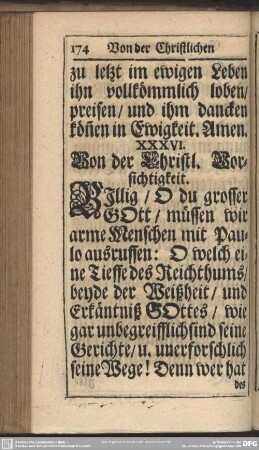 174 Von der Christlichen
zu letzt im ewigen Leben
ihn vollkömmlich loben/
preisen/ und ihm dancken
köñen in Ewigkeit. Amen.
XXXVI.
Von der Christl. Vor-
sichtigkeit.
BIllig/ O du grosser
GOtt/ müssen wir
arme Menschen mit Pau-
lo ausruffen: O welch ei-
ne Tieffe des Reichthums/
beyde der Weißheit/ und
Erkäntniß GOttes/ wie
gar unbegreifflich sind seine
Gerichte/ u. unerforschlich
seine Wege! Denn wer hat
des
DFG